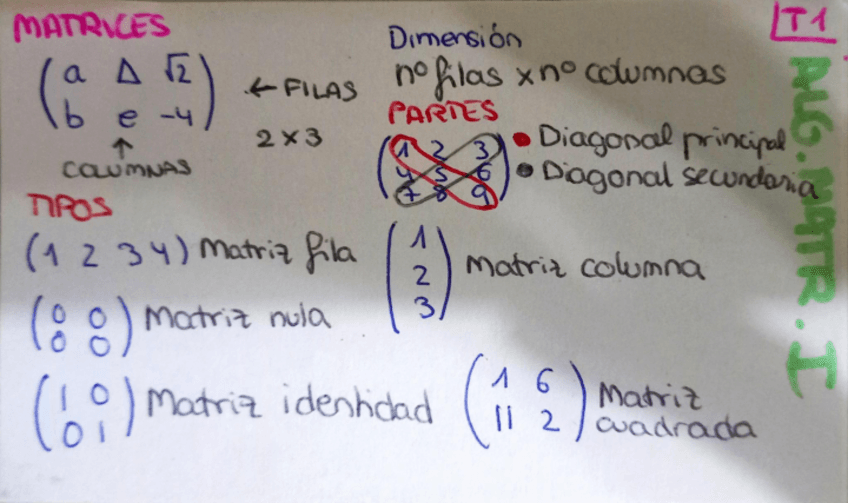 MATRICES
T1
ALG. MATR. I
(a Δ √2
b e -4)
← FILAS
2 x 3
↑
COLUMNAS
Dimensión
nº filas x nº columnas
PARTES
(1 2 3
4 5 6
7 8 9)
• Diagonal principal
• Diagonal secundaria
TIPOS
(1 2 3 4) Matriz fila
(1
2
3) Matriz columna
(0 0
0 0) Matriz nula
(1 0
0 1) Matriz identidad
(1 6
11 2) Matriz
cuadrada